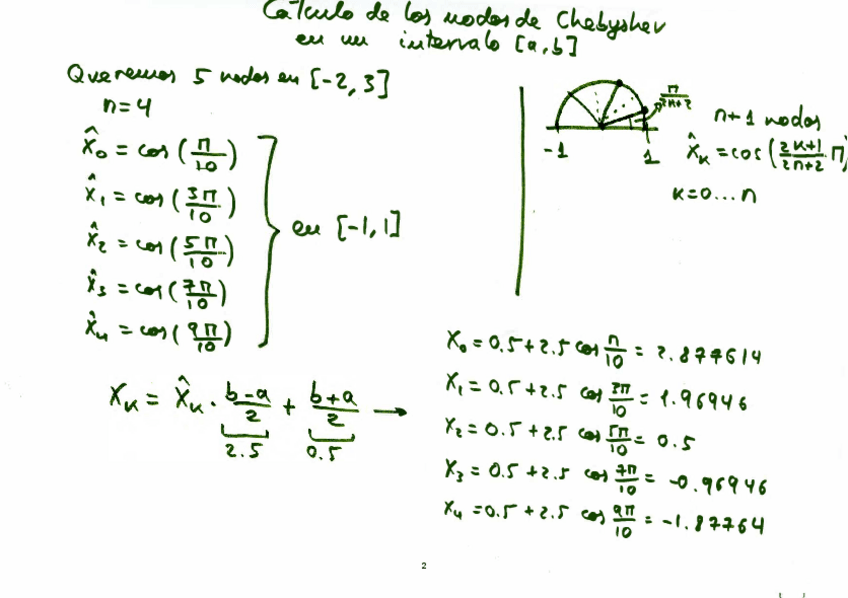 Cálculo de los nodos de Chebyshev
en un intervalo [a,b]
Queremos 5 nodos en [-2, 3]
n=4
x̂₀ = cos(π/10)
x̂₁ = cos(3π/10)
x̂₂ = cos(5π/10)
x̂₃ = cos(7π/10)
x̂₄ = cos(9π/10)
en [-1,1]
xₖ = x̂ₖ · (b-a)/2 + (b+a)/2 →
2.5 0.5
π/(2n+2)
-1 1
n+1 nodos
x̂ₖ = cos((2k+1)/(2n+2) · π)
k=0...n
x₀ = 0.5+2.5 cos π/10 = 2.877614
x₁ = 0.5+2.5 cos 3π/10 = 1.96946
x₂ = 0.5+2.5 cos 5π/10 = 0.5
x₃ = 0.5+2.5 cos 7π/10 = -0.96946
x₄ = 0.5+2.5 cos 9π/10 = -1.87764
2